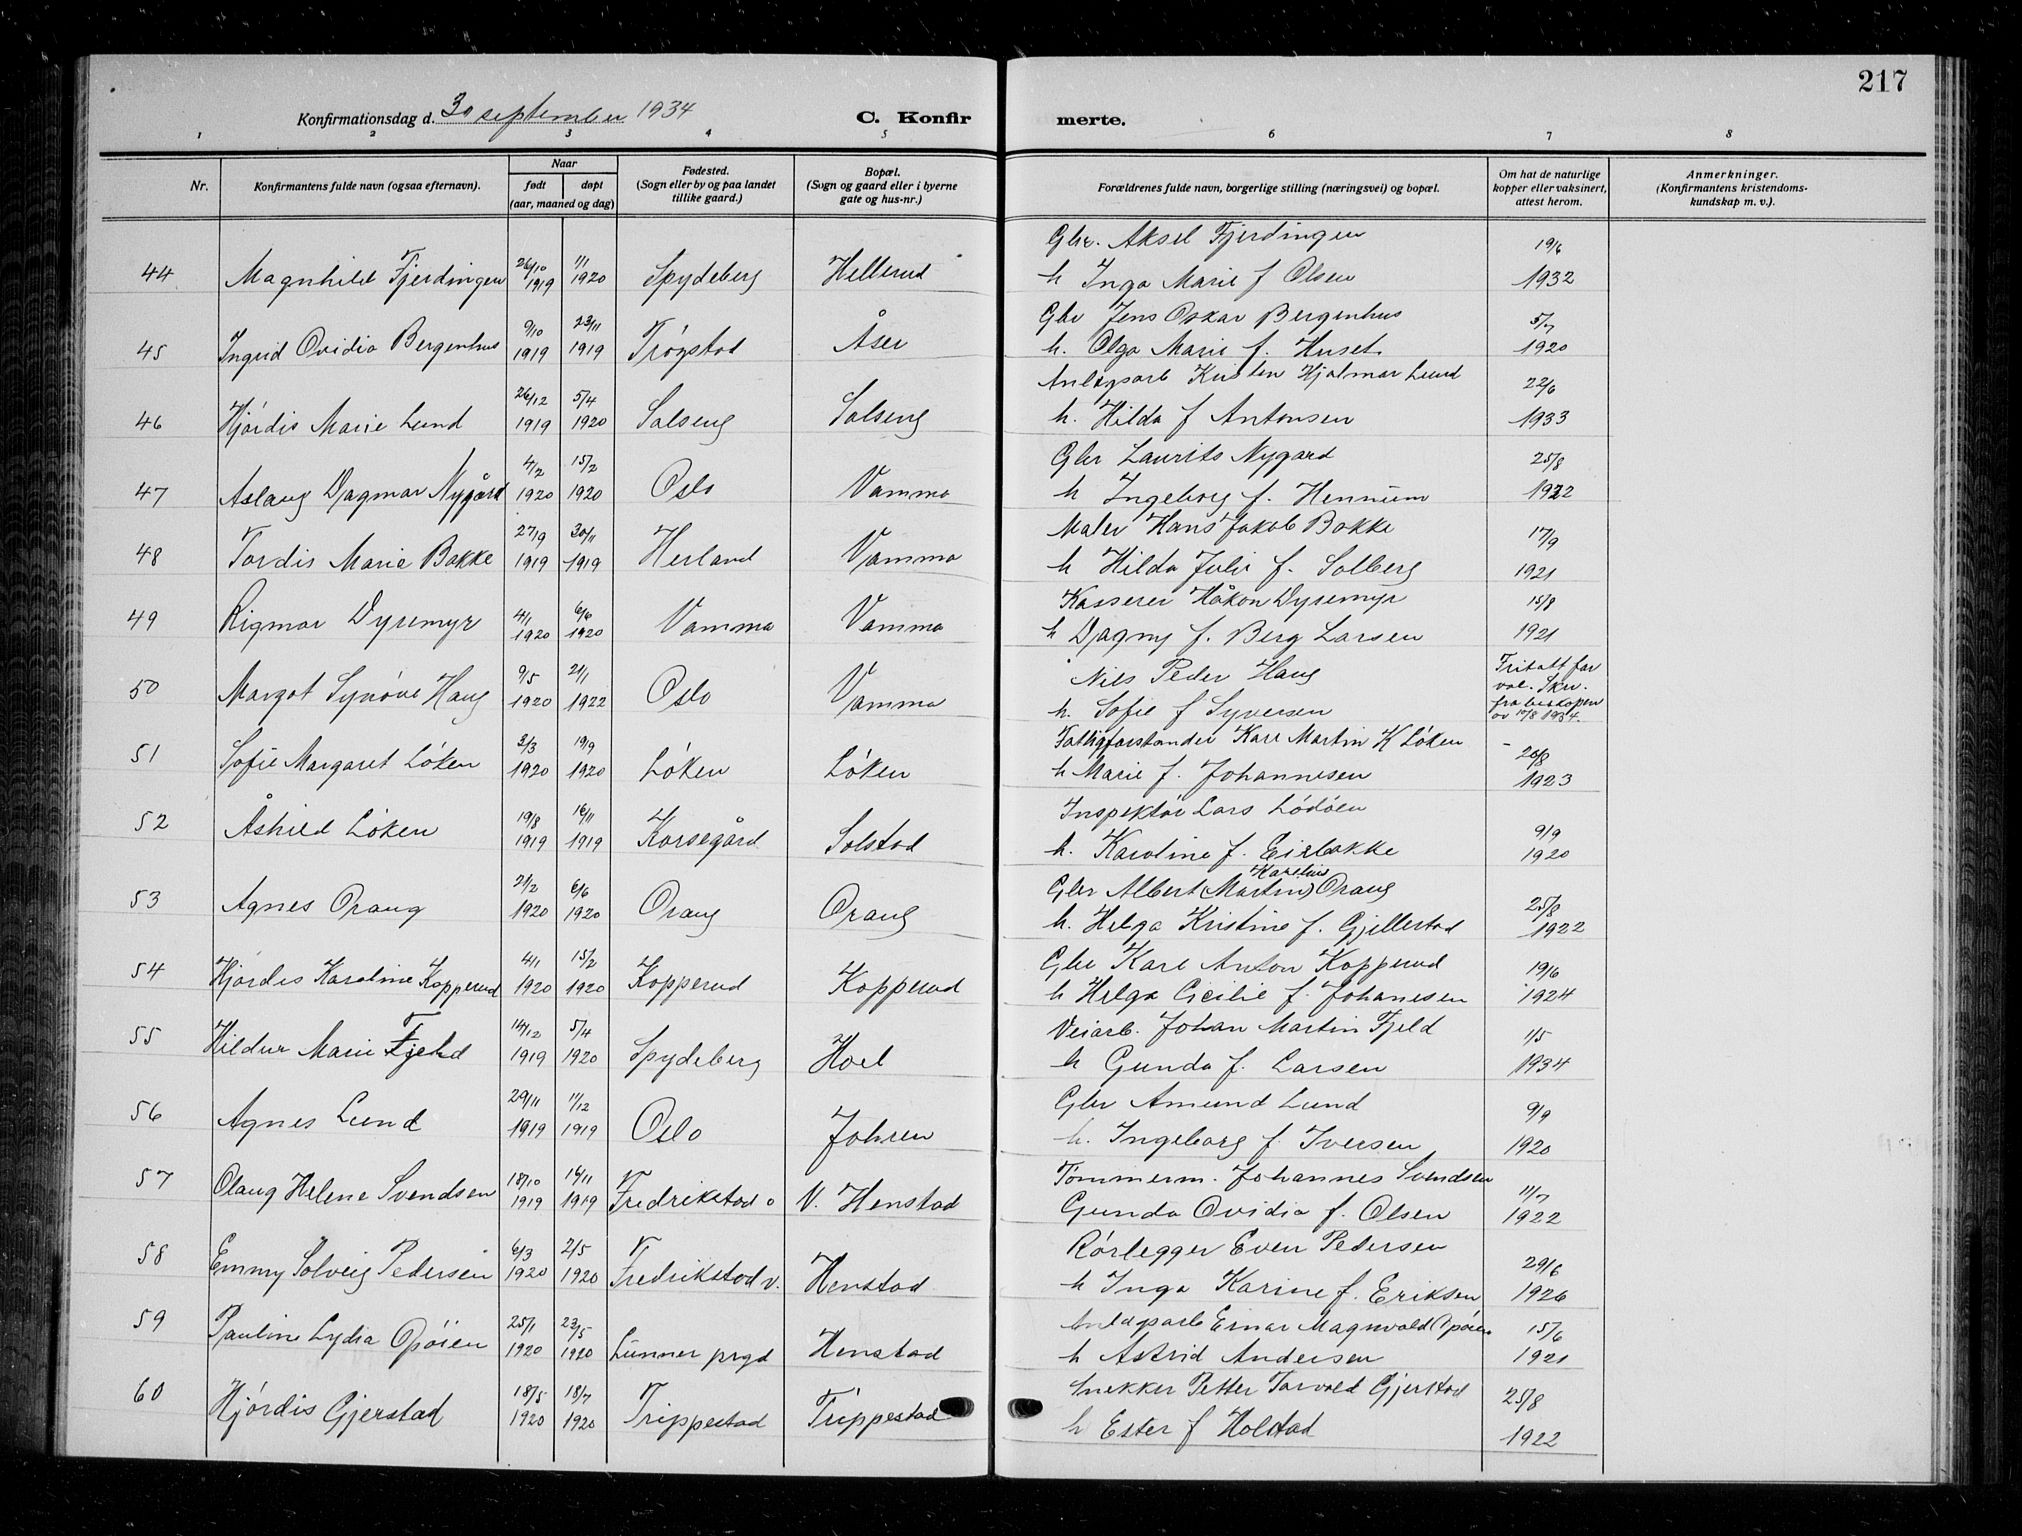 217
Konfirmationsdag d. 30 september 1934 C. Konfirmerte.
1 2 3 4 5 6 7 8
Nr. Konfirmantens fulde navn (ogsaa efternavn). Naar født døpt (aar, maaned og dag) Fødested. (Sogn eller by og paa landet tillike gaard.) Bopæl. (Sogn og gaard eller i byerne gate og hus-nr.) Forældrenes fulde navn, borgerlige stilling (næringsvei) og bopæl. Om hat de naturlige kopper eller vaksinert, attest herom. Anmerkninger. (Konfirmantens kristendoms-kundskap m. v.).
Gbr. Aksel Fjerdingen 19/6
44 Magnhild Fjerdingen 26/10 1919 1/1 1920 Spydeberg Hellerud h Inga Marie f Olsen 1932
Gbr Jens Oskar Bergenhus 5/7
45 Ingrid Ovidia Bergenhus 9/10 1919 23/11 1919 Trøgstad Åser h. Olga Marie f. Huset 1920
Anlegsarb Kristen Hjalmar Lund 22/6
46 Hjördis Marie Lund 26/12 1919 5/4 1920 Solseng Solseng h. Hilda f Antonsen 1933
Gbr Laurits Nygard 25/8
47 Aslaug Dagmar Nygård 4/2 1920 15/2 1920 Oslo Vamma h Ingeborg f. Hennum 1922
Maler Hans Jakob Bakke 17/9
48 Tordis Marie Bakke 27/9 1919 30/11 1919 Herland Vamma h Hilda Julie f. Solberg 1921
Kasserer Håkon Dyremyr 15/8
49 Rigmor Dyremyr 4/1 1920 6/6 1920 Vamma Vamma h Dagny f. Berg Larsen 1921
Nils Peder Haug Fritatt for vak. Skr. fra biskopen
50 Margot Synøve Haug 9/5 1920 21/1 1922 Oslo Vamma h. Sofie f Syversen av 10/8 1934.
Fattigforstander Karl Martin K Løken 20/8
51 Sofie Margaret Løken 3/3 1920 19/9 1920 Løken Løken h Marie f. Johannesen 1923
Inspektör Lars Lödöen 9/9
52 Åshild Løken 19/8 1919 16/11 1919 Korsegård Solstad h. Karoline f. Eirbakke 1920
Karelius
Gbr Albert (Martin) Oraug 25/8
53 Agnes Oraug 21/2 1920 6/6 1920 Oraug Oraug h. Helga Kristine f. Gjellestad 1922
Gbr Karl Anton Kopperud 19/6
54 Hjördis Karoline Kopperud 4/1 1920 15/2 1920 Kopperud Kopperud h Helga Cicilie f. Johanesen 1924
Veiarb. Johan Martin Fjeld 1/5
55 Hildur Marie Fjeld 14/12 1919 5/4 1920 Spydeberg Hoel h Gunda f. Larsen 1934
Gbr Amund Lund 9/9
56 Agnes Lund 29/11 1919 1/12 1919 Oslo Johren h. Ingeborg f. Iversen 1920
Tömmerm. Johannes Svendsen 11/7
57 Olaug Helene Svendsen 18/10 1919 16/11 1919 Fredrikstad o V. Henstad Gunda Ovidia f. Olsen 1922
Rörlegger Even Pedersen 29/6
58 Emmy Solveig Pedersen 6/3 1920 2/5 1920 Fredrikstad v. Henstad h Inga Karine f. Eriksen 1926
Anlegsarb Einar Magnvald Opöien 15/6
59 Pauline Lydia Opöien 25/1 1920 23/5 1920 Lunner prgd Henstad h Astrid Andersen 1921
Snekker Petter Torvald Gjerstad 25/8
60 Hjördis Gjerstad 18/5 1920 18/7 1920 Trippestad Trippestad h Ester f Holstad 1922